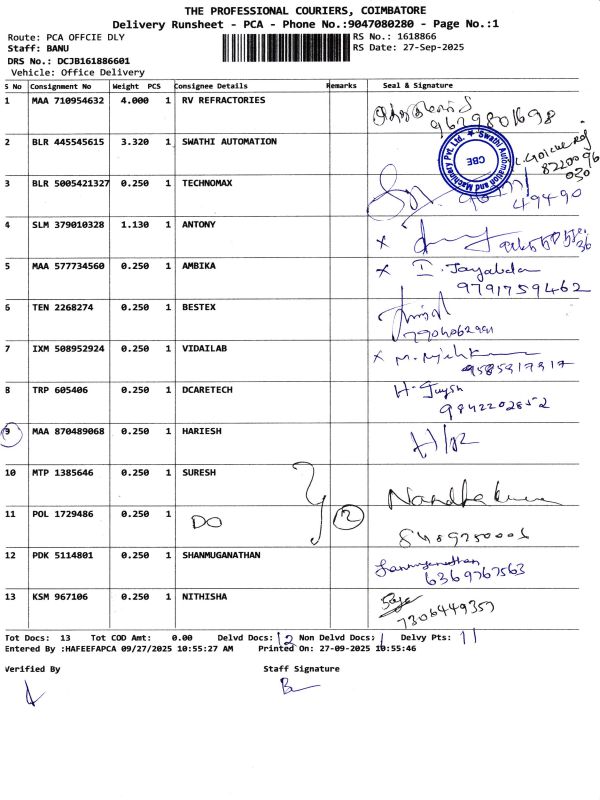 THE PROFESSIONAL COURIERS, COIMBATORE
Delivery Runsheet - PCA - Phone No.:9047080280 - Page No.:1
Route: PCA OFFCIE DLY RS No.: 1618866
Staff: BANU RS Date: 27-Sep-2025
DRS No.: DCJB161886601
Vehicle: Office Delivery
S No Consignment No Weight PCS Consignee Details Remarks Seal & Signature
1 MAA 710954632 4.000 1 RV REFRACTORIES
9629801698
2 BLR 445545615 3.320 1 SWATHI AUTOMATION
Swathi Automation and Machinery Pvt. Ltd. ★ CBE
8220096
030
3 BLR 5005421327 0.250 1 TECHNOMAX
49490
4 SLM 379010328 1.130 1 ANTONY x
5 MAA 577734560 0.250 1 AMBIKA x I. Jayabalan
9791759462
6 TEN 2268274 0.250 1 BESTEX
7 IXM 508952924 0.250 1 VIDAILAB x
8 TRP 605406 0.250 1 DCARETECH
9942202852
9 MAA 870489068 0.250 1 HARIESH
10 MTP 1385646 0.250 1 SURESH Nandhakumar
11 POL 1729486 0.250 1 DO 2
12 PDK 5114801 0.250 1 SHANMUGANATHAN Shanmuganathan
6369767563
13 KSM 967106 0.250 1 NITHISHA
7306449357
Tot Docs: 13 Tot COD Amt: 0.00 Delvd Docs: 12 Non Delvd Docs: 1 Delvy Pts: 11
Entered By :HAFEEFAPCA 09/27/2025 10:55:27 AM Printed On: 27-09-2025 10:55:46
Verified By Staff Signature